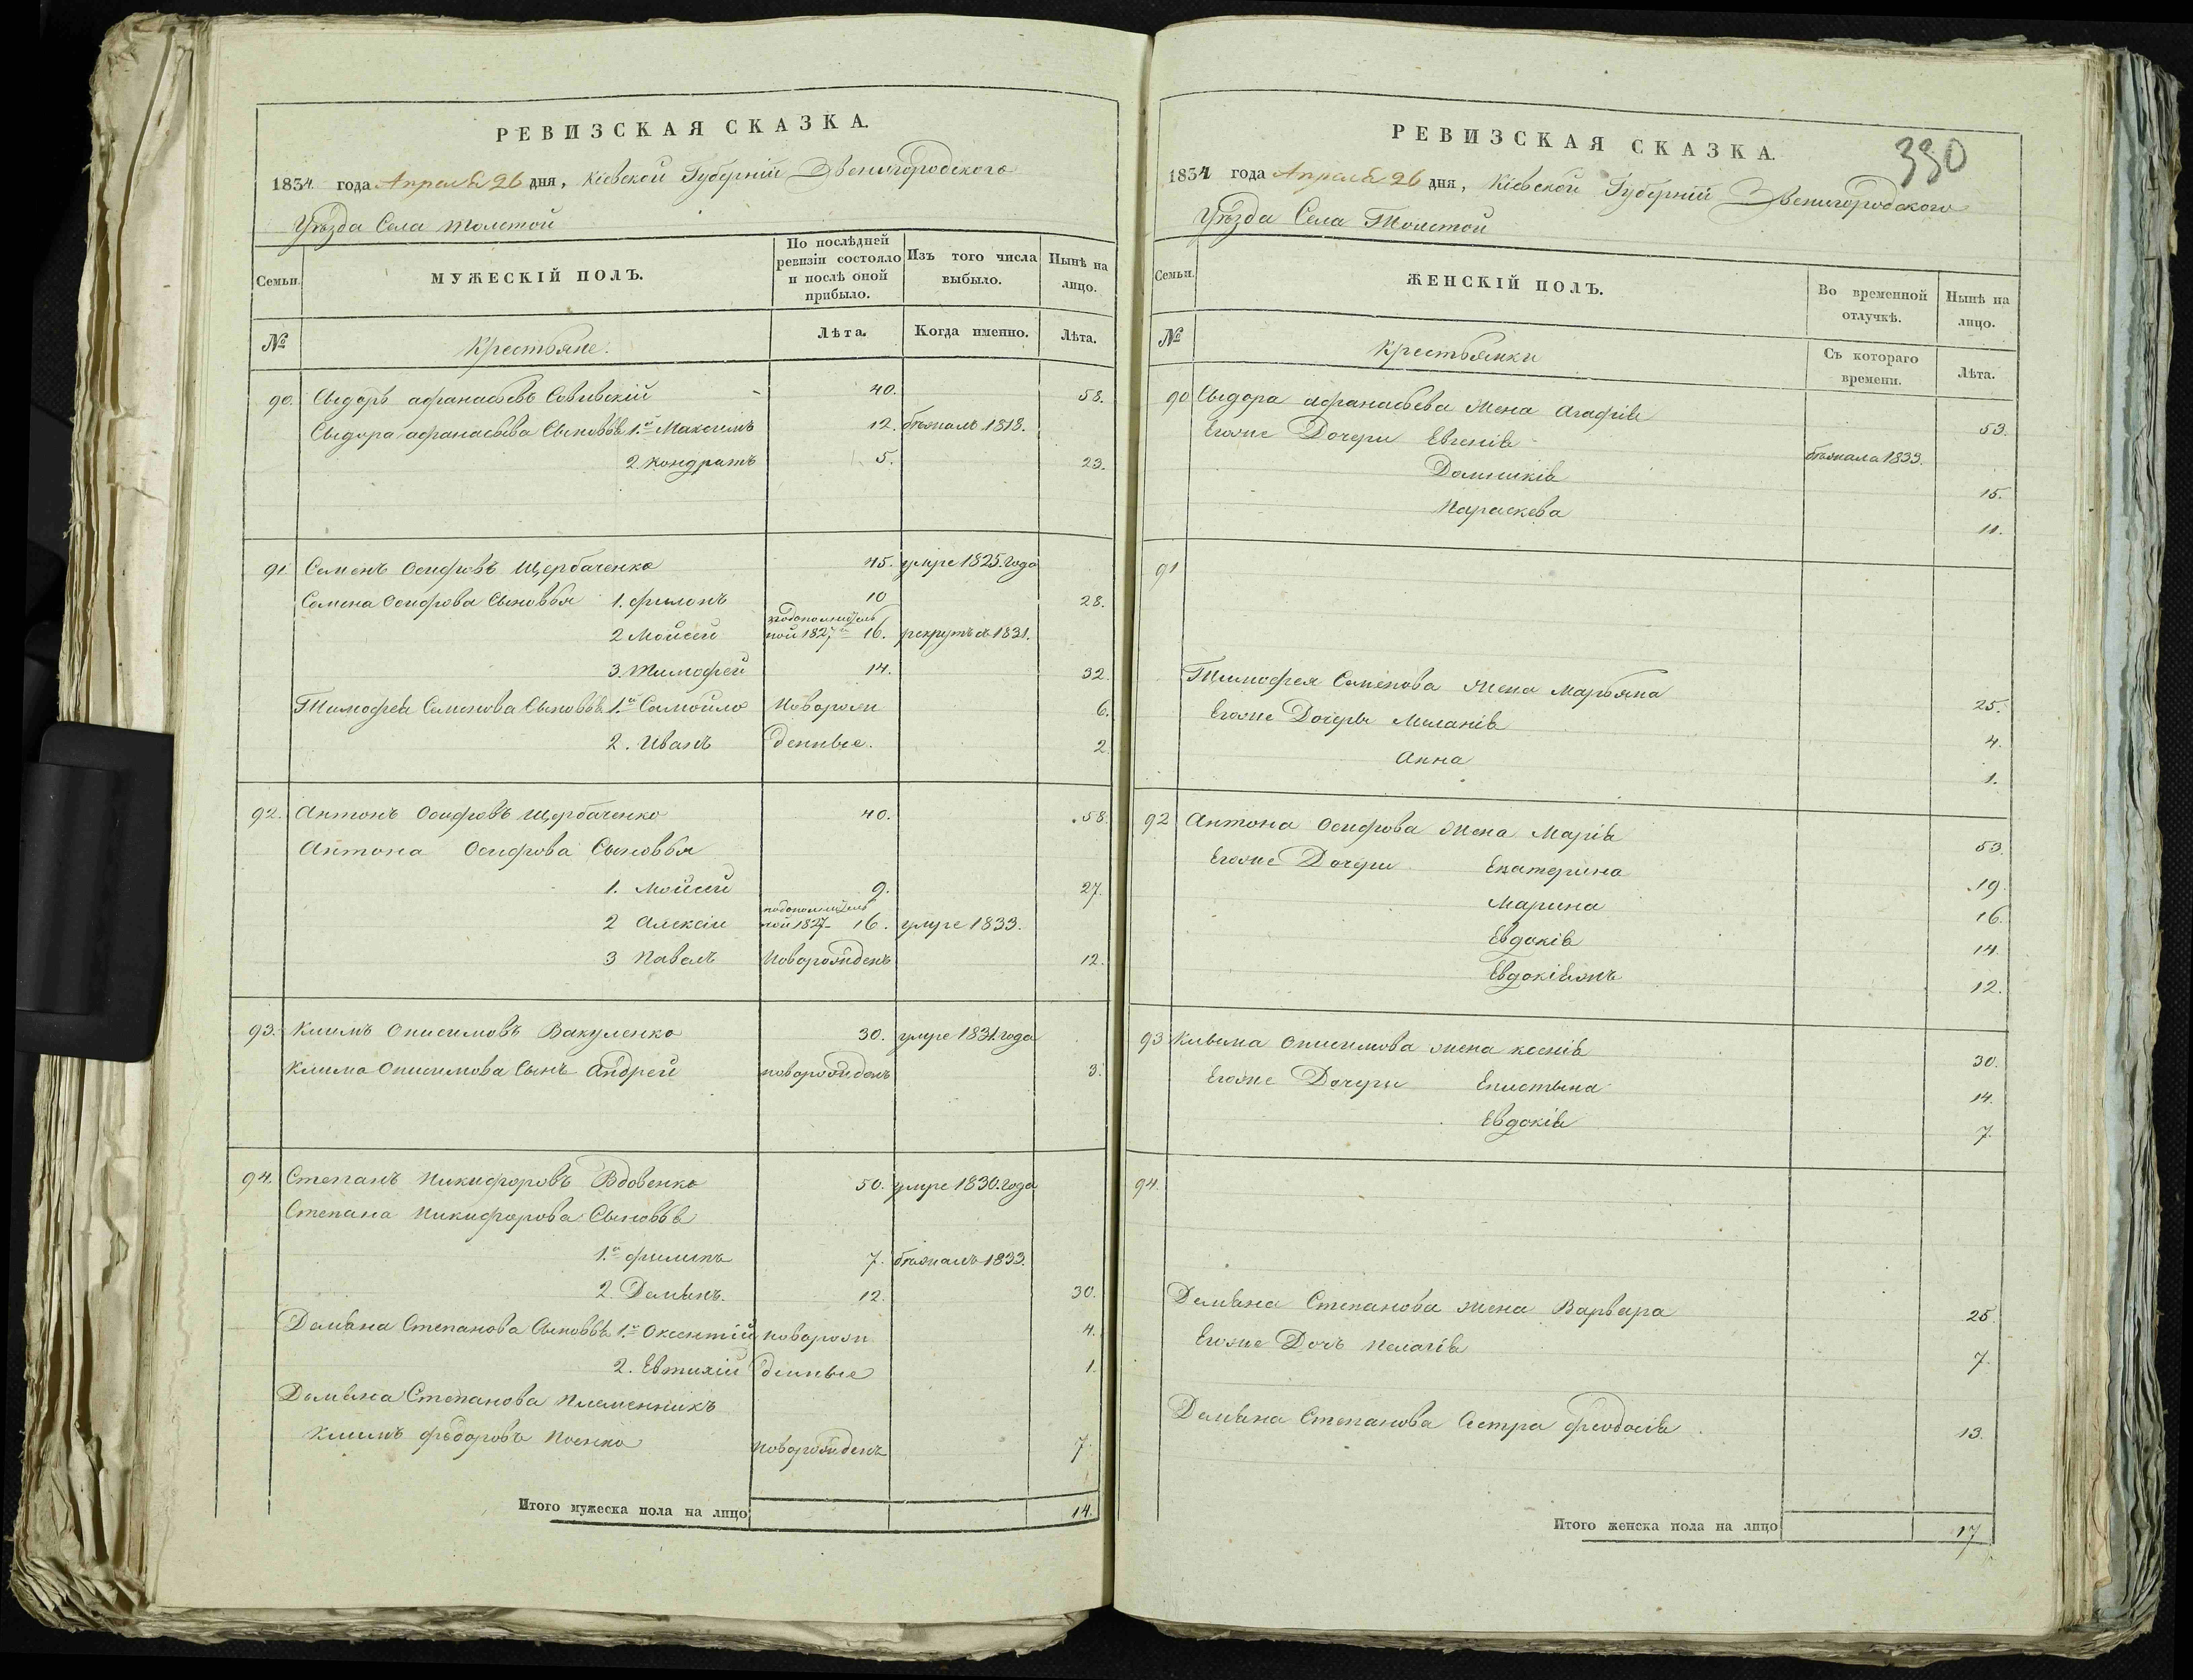 РЕВИЗСКАЯ СКАЗКА.
1834 года Апреля 26 дня, Кіевской Губерніи Звенигородского
Уѣзда Села Толстой
Семьи.
МУЖЕСКІЙ ПОЛЪ.
По послѣдней ревизіи состояло и послѣ оной прибыло.
Изъ того числа выбыло.
Нынѣ на лицо.
№
Крестьяне.
Лѣта.
Когда именно.
Лѣта.
90. Сыдоръ афанасьевъ 40. 58.
Сыдора афанасьева Сыновья 1.й Максимъ 12. бѣжалъ 1818.
2. Кондратъ 5. 23.
91 Семенъ Осифовъ Щербаченко 45. умре 1825. года
Семена Осифова Сыновья 1. филонъ 10 28.
2 Мойсей ной 1827й 16. рекрутъ в 1831.
3. Тимофей 14. 32.
Тимофея Семенова Сыновья 1.й Самойло Еноворож 6.
2. Иванъ денные. 2.
92. Антонъ Осифовъ Щербаченко 40. 58.
Антона Осифова Сыновья
1. Мойсей 9. 27.
2 Алексѣй ной 1827 16. умре 1833.
3 Павелъ Новорожденъ 12.
93. Климъ Онисимовъ Вакуленко 30. умре 1831. года
Клима Онисимова Сынъ Андрей новорожденъ 3.
94. Степанъ Никифоровъ Вдовенко 50. умре 1830. года
Степана Никифорова Сыновья
1.й филипъ 7. бѣжалъ 1833.
2. Демянъ. 12. 30.
Демяна Степанова Сыновья 1.й Оксентій новорож 4.
2. Евтихій денные 1.
Демяна Степанова Племенникъ
Климъ федоровъ новорожденъ 7.
Итого мужеска пола на лицо 14.
РЕВИЗСКАЯ СКАЗКА.
330
1834 года Апреля 26 дня, Кіевской Губерніи Звенигородского
Уѣзда Села Толстой
Семьи.
ЖЕНСКІЙ ПОЛЪ.
Во временной отлучкѣ.
Нынѣ на лицо.
№
Крестьянки
Съ котораго времени.
Лѣта.
90 Сыдора афанасьева жена Агафія 53.
Егоже Дочери Евгенія бѣжала 1833.
Домникія 15.
Параскева 11.
91
Тимофея Семенова жена Марьяна 25.
Егоже Дочеры Меланія 4.
Анна 1.
92 Антона Осифова жена Марія 53.
Егоже Дочери Екатерина 19.
Марина 16.
Евдокія 14.
Евдокіяжъ 12.
93 Клыма Онисимова жена ксенія 30.
Егоже Дочери Епистына 14.
Евдокія 7.
94.
Демяна Степанова жена Варвара 25.
Егоже Дочь Пелагія 7.
Демяна Степанова Сестра феодосія 13.
Итого женска пола на лицо 17